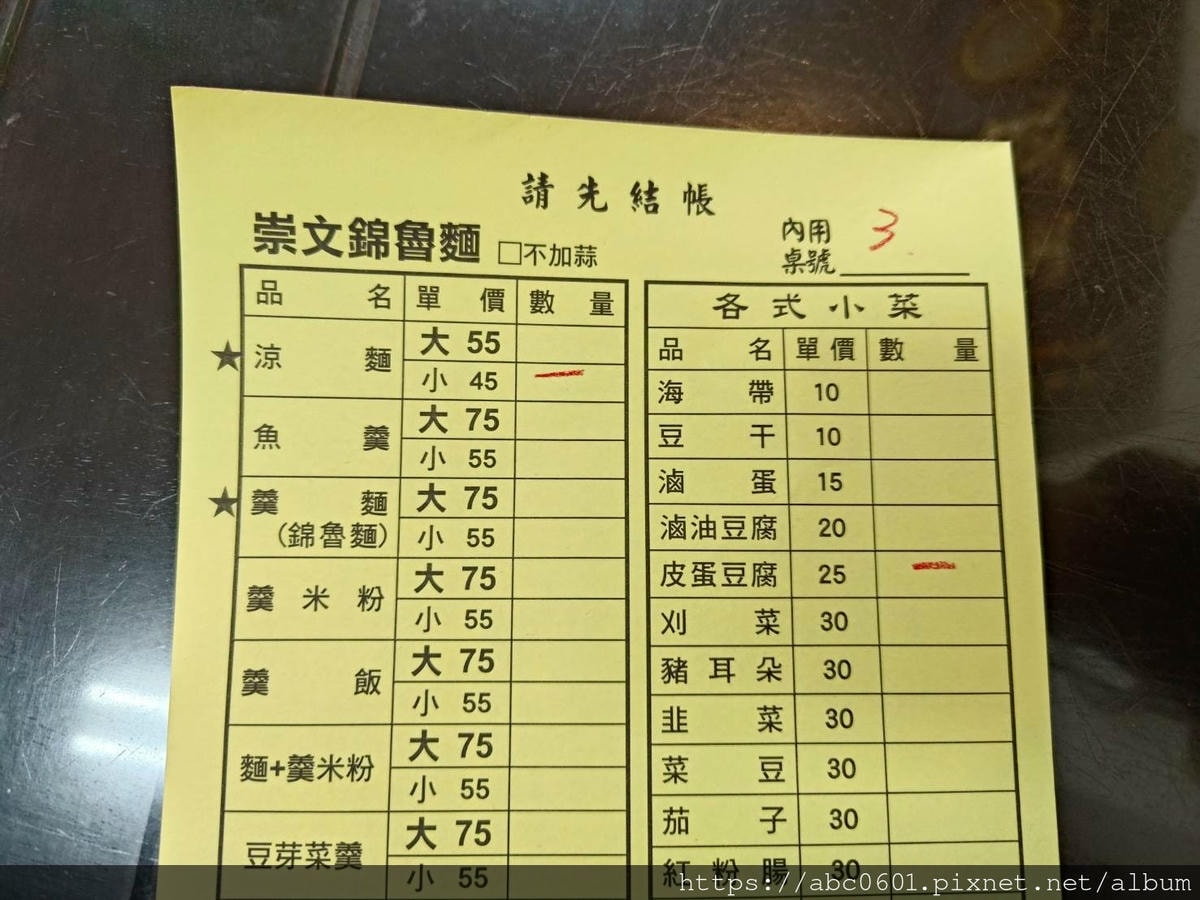 請先結帳
崇文錦魯麵 □不加蒜
內用 3
桌號
品名 單價 數量
★ 涼麵 大 55
小 45 一
魚羹 大 75
小 55
★ 羹麵 大 75
(錦魯麵) 小 55
羹米粉 大 75
小 55
羹飯 大 75
小 55
麵+羹米粉 大 75
小 55
豆芽菜羹 大 75
小 55
各式小菜
品名 單價 數量
海帶 10
豆干 10
滷蛋 15
滷油豆腐 20
皮蛋豆腐 25 一
刈菜 30
豬耳朵 30
韭菜 30
菜豆 30
茄子 30
紅粉腸 30
https://abc0601.pixnet.net/album